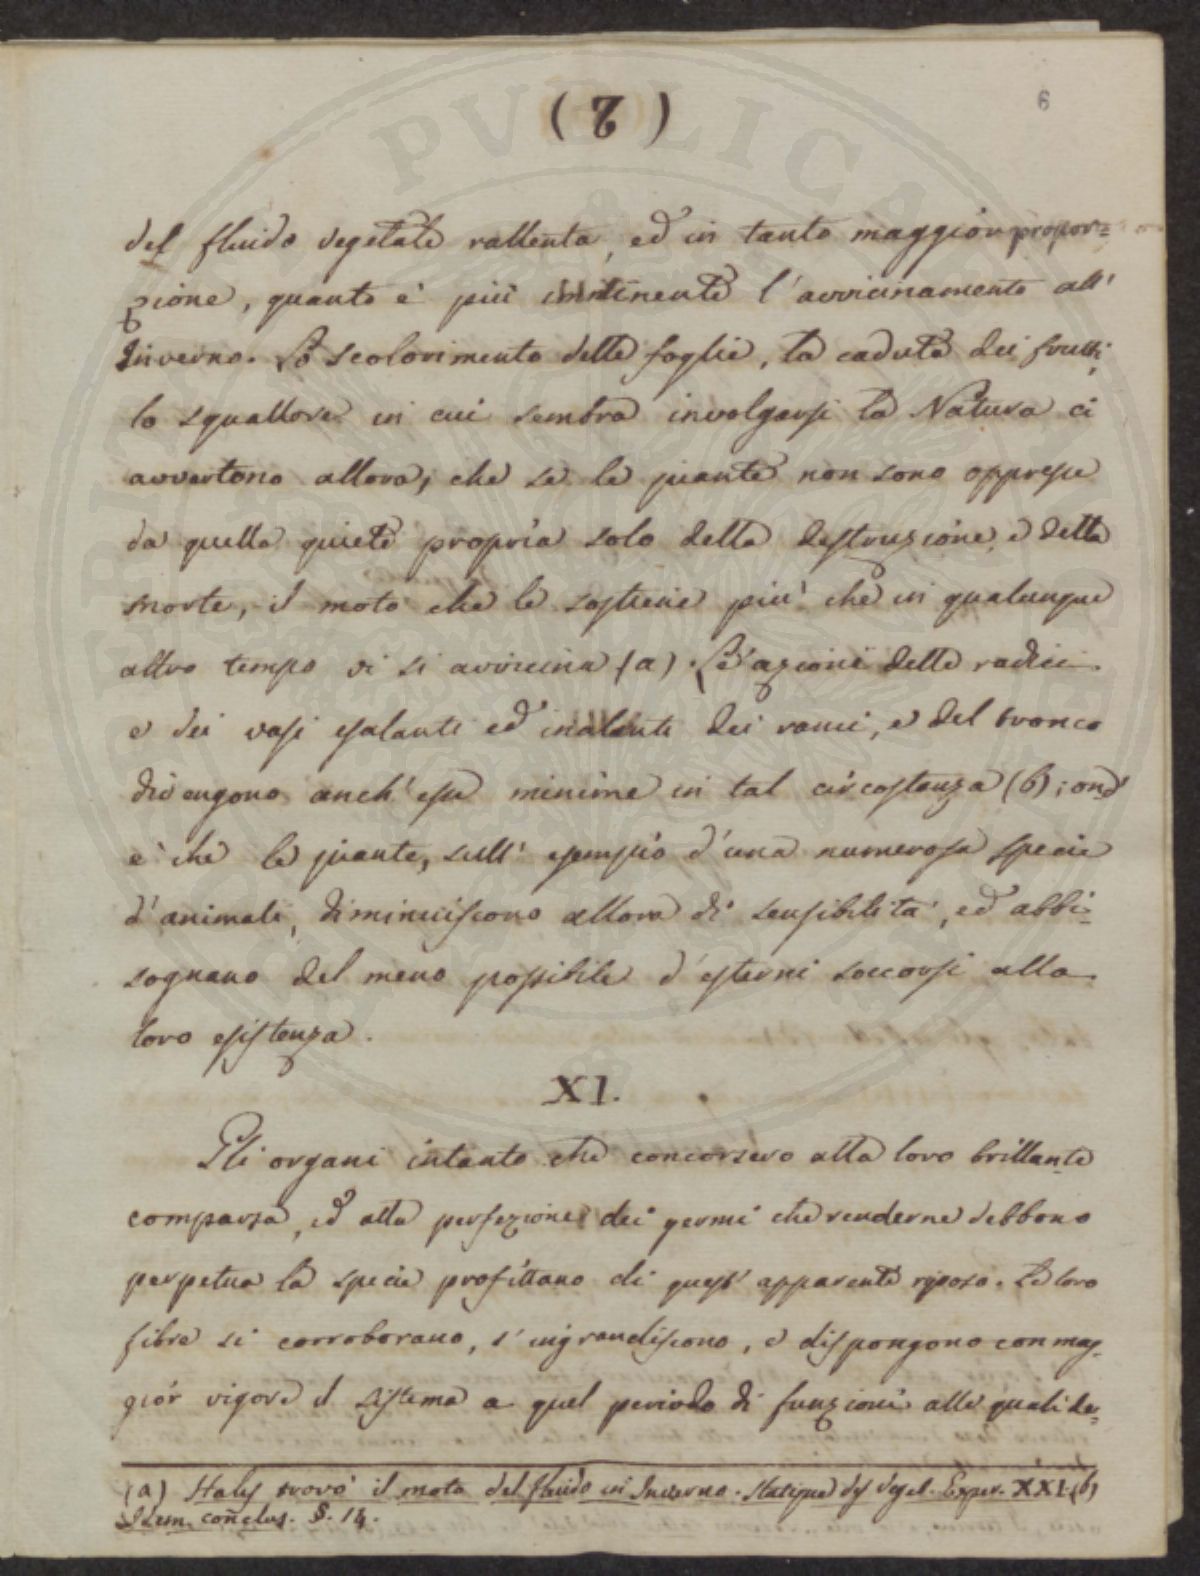 (7)
6
del fluido vegetale rallenta, ed in tanto maggiór propor=
zione, quanto è più imminente l'avvicinamento all'
Inverno. Lo scolorimento delle foglie, la caduta dei frutti,
lo squallore in cui sembra involgersi la Natura ci
avvertono allora, che se le piante non sono oppresse
da quella quiete propria solo della destruzione, e della
morte, il moto che le sostiene più che in qualunque
altro tempo vi si avvicina (a). Le azioni delle radici
e dei vasi esalanti ed inalanti dei rami, e del tronco
divengono anch'esse minime in tal circostanza (b); ond'
e' che le piante, sull'esempio d'una numerosa specie
d'animali, diminuiscono allora di sensibilità, ed abbi-
sognano del meno possibile d'esterni soccorsi alla
loro esistenza.
XI.
Gli organi intanto che concorsero alla loro brillante
comparsa, ed alla perfezione dei germi che renderne debbono
perpetua la specie profittano di quest'apparente riposo. Le loro
fibre si corroborano, s'ingrandiscono, e dispongono con mag-
giór vigore il sistema a quel periodo di funzioni alle quali de=
(a) Hales trovò il moto del fluido in Inverno. Statique des Veget. Exper. XXI. (b)
Idem. conclus. §. 14.